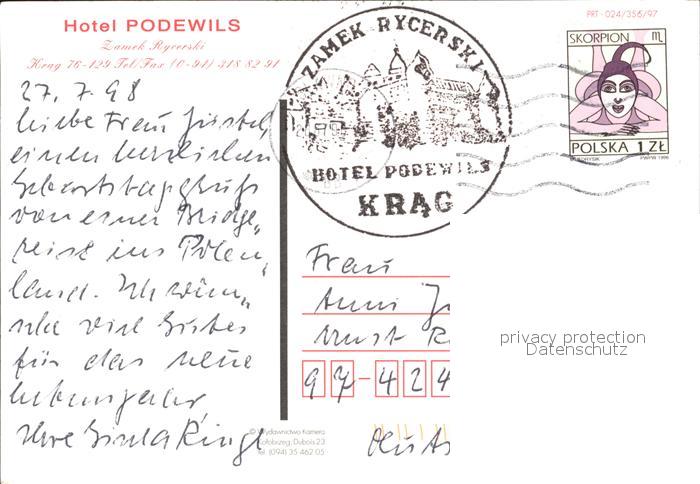 Hotel PODEWILS
Zamek Rycerski
Krąg 76-129 Tel/Fax (0-94) 318 82 91
27.7.98
Liebe Frau
einen herzlichen
Geburtstagsgruß
von einer Bridge„
reise ins Polen„
land. Ich wün„
sche viel Gutes
für das neue
Lebensjahr
Ihre Gisela Ringl
ZAMEK RYCERSKI
HOTEL PODEWILS
KRĄG
PRT - 024/356/97
SKORPION
POLSKA 1 ZŁ
PWPW 1996
Frau
Anni
97-424
privacy protection
Datenschutz
© Wydawnictwo Kamera
Kołobrzeg, Dubois 23
Tel. (094) 35 462 05